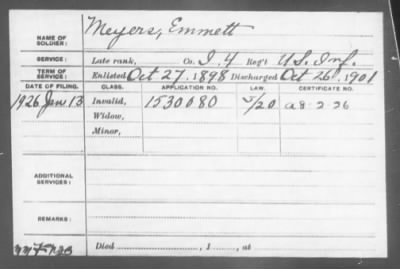 NAME OF SOLDIER: Meyers, Emmett
SERVICE: Late rank, Co. I. 4 Reg't U.S. Inf.
TERM OF SERVICE: Enlisted Oct 27. 1898 Discharged Oct 26, 1901
DATE OF FILING. CLASS. APPLICATION NO. LAW. CERTIFICATE NO.
1926 Jan 13 Invalid, 1530080
Widow,
Minor,
ADDITIONAL SERVICES:
REMARKS:
Died , 1 , at